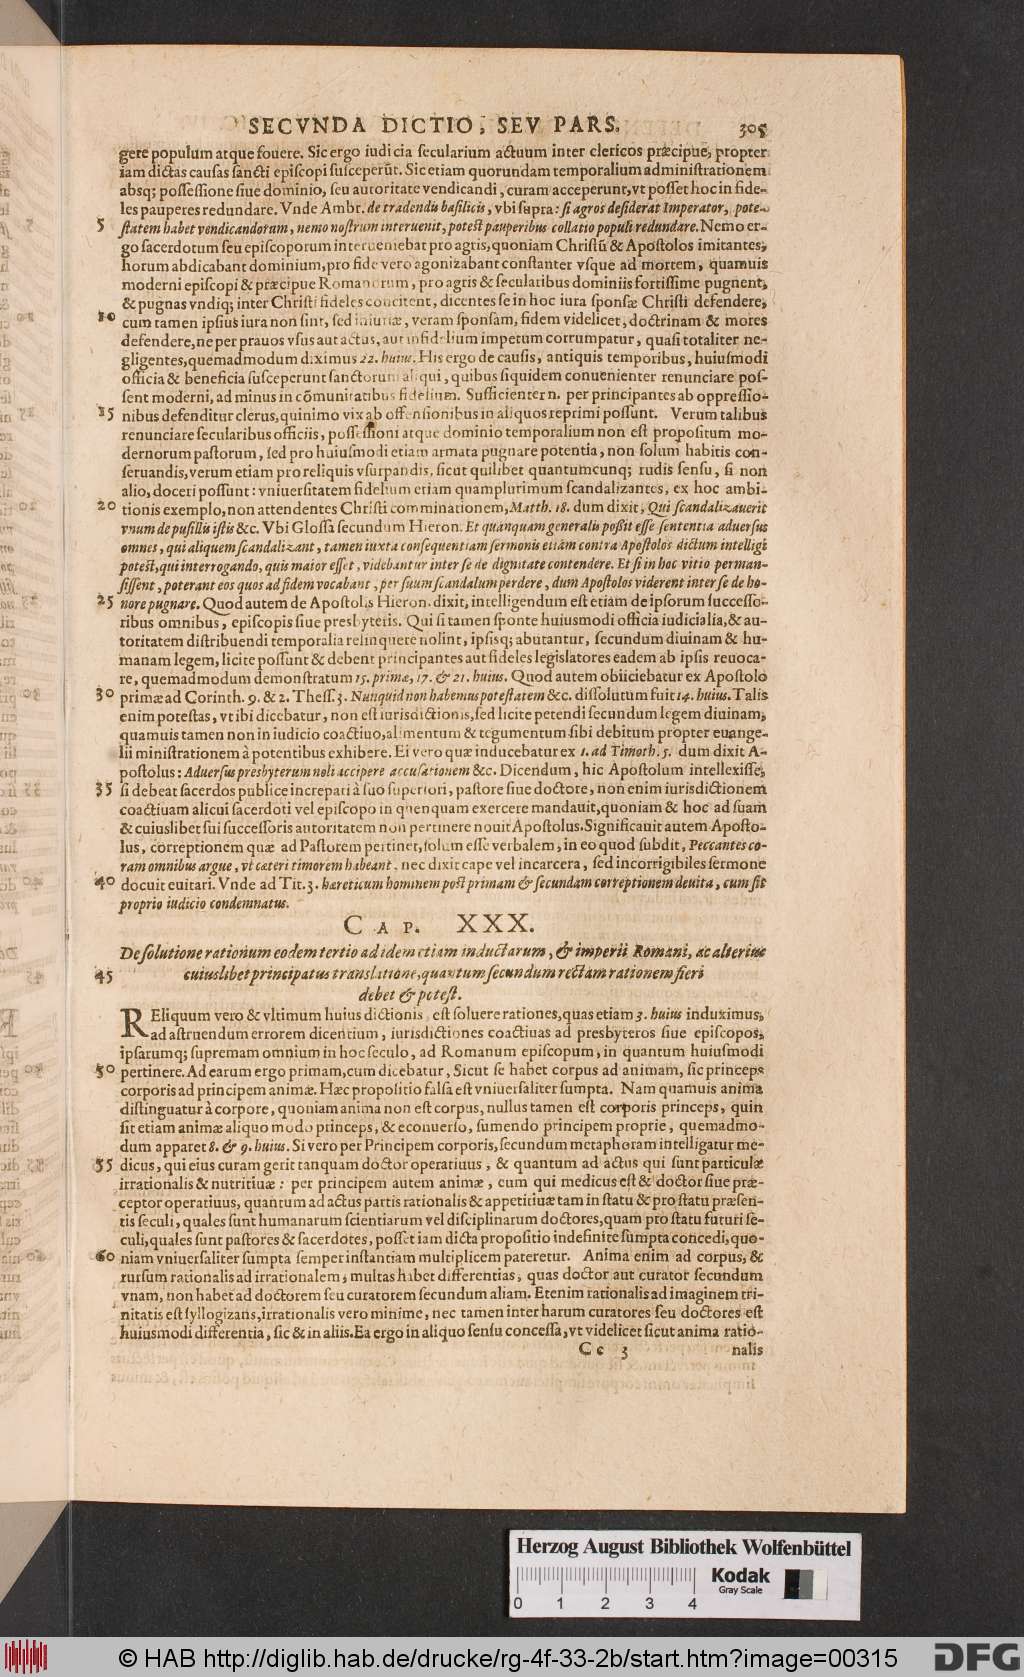 SECVNDA DICTIO, SEV PARS. 305
gere populum atque fouere. Sic ergo iudicia secularium actuum inter clericos præcipuè, propter
iam dictas causas sancti episcopi susceperũt. Sic etiam quorundam temporalium administrationem
absq; possessione siue dominio, seu autoritate vendicandi, curam acceperunt, vt posset hoc in fide-
les pauperes redundare. Vnde Ambr. de tradendis basilicis, vbi supra: si agros desiderat Imperator, pote-
5 statem habet vendicandorum, nemo nostrum interuenit, potest pauperibus collatio populi redundare. Nemo er-
go sacerdotum seu episcoporum interueniebat pro agris, quoniam Christũ & Apostolos imitantes,
horum abdicabant dominium, pro fide vero agonizabant constanter vsque ad mortem, quamuis
moderni episcopi & præcipue Romanorum, pro agris & secularibus dominiis fortissime pugnent,
& pugnas vndiq; inter Christi fideles concitent, dicentes se in hoc iura sponsæ Christi defendere,
10 cum tamen ipsius iura non sint, sed iniuriæ, veram sponsam, fidem videlicet, doctrinam & mores
defendere, ne per prauos vsus aut actus, aut infidelium impetum corrumpatur, quasi totaliter ne-
gligentes, quemadmodum diximus 22. huius. His ergo de causis, antiquis temporibus, huiusmodi
officia & beneficia susceperunt sanctorum aliqui, quibus siquidem conuenienter renunciare pos-
sent moderni, ad minus in cõmunitatibus fidelium. Sufficienter n. per principantes ab oppressio-
15 nibus defenditur clerus, quinimo vix ab offensionibus in aliquos reprimi possunt. Verum talibus
renunciare secularibus officiis, possessioni atque dominio temporalium non est propositum mo-
dernorum pastorum, sed pro huiusmodi etiam armata pugnare potentia, non solum habitis con-
seruandis, verum etiam pro reliquis vsurpandis, sicut quilibet quantumcunq; rudis sensu, si non
alio, doceri possunt: vniuersitatem fidelium etiam quamplurimum scandalizantes, ex hoc ambi-
20 tionis exemplo, non attendentes Christi comminationem, Matth. 18. dum dixit, Qui scandalizauerit
vnum de pusillis istis &c. Vbi Glossa secundum Hieron. Et quanquam generalis possit esse sententia aduersus
omnes, qui aliquem scandalizant, tamen iuxta consequentiam sermonis etiam contra Apostolos dictum intelligi
potest, qui interrogando, quis maior esset, videbantur inter se de dignitate contendere. Et si in hoc vitio perman-
sissent, poterant eos quos ad fidem vocabant, per suum scandalum perdere, dum Apostolos viderent inter se de ho-
25 nore pugnare. Quod autem de Apostolis Hieron. dixit, intelligendum est etiam de ipsorum successo-
ribus omnibus, episcopis siue presbyteris. Qui si tamen sponte huiusmodi officia iudicialia, & au-
toritatem distribuendi temporalia relinquere nolint, ipsisq; abutantur, secundum diuinam & hu-
manam legem, licite possunt & debent principantes aut fideles legislatores eadem ab ipsis reuoca-
re, quemadmodum demonstratum 15. primæ, 17. & 21. huius. Quod autem obiiciebatur ex Apostolo
30 primæ ad Corinth. 9. & 2. Thess. 3. Nunquid non habemus potestatem &c. dissolutum fuit 14. huius. Talis
enim potestas, vt ibi dicebatur, non est iurisdictionis, sed licite petendi secundum legem diuinam,
quamuis tamen non in iudicio coactiuo, alimentum & tegumentum sibi debitum propter euange-
lii ministrationem à potentibus exhibere. Ei vero quæ inducebatur ex 1. ad Timoth. 5. dum dixit A-
postolus: Aduersus presbyterum noli accipere accusationem &c. Dicendum, hic Apostolum intellexisse,
35 si debeat sacerdos publice increpari à suo superiori, pastore siue doctore, non enim iurisdictionem
coactiuam alicui sacerdoti vel episcopo in quenquam exercere mandauit, quoniam & hoc ad suam
& cuiuslibet sui successoris autoritatem non pertinere nouit Apostolus. Significauit autem Aposto-
lus, correptionem quæ ad Pastorem pertinet, solum esse verbalem, in eo quod subdit, Peccantes co-
ram omnibus argue, vt cæteri timorem habeant, nec dixit cape vel incarcera, sed incorrigibiles sermone
40 docuit euitari. Vnde ad Tit. 3. hæreticum hominem post primam & secundam correptionem deuita, cum sit
proprio iudicio condemnatus.
CAP. XXX.
De solutione rationum eodem tertio ad idem etiam inductarum, & imperii Romani, ac alterius
45 cuiuslibet principatus translatione, quantum secundum rectam rationem fieri
debet & potest.
REliquum vero & vltimum huius dictionis est soluere rationes, quas etiam 3. huius induximus,
ad astruendum errorem dicentium, iurisdictiones coactiuas ad presbyteros siue episcopos,
ipsarumq; supremam omnium in hoc seculo, ad Romanum episcopum, in quantum huiusmodi
50 pertinere. Ad earum ergo primam, cum dicebatur, Sicut se habet corpus ad animam, sic princeps
corporis ad principem animæ. Hæc propositio falsa est vniuersaliter sumpta. Nam quamuis anima
distinguatur à corpore, quoniam anima non est corpus, nullus tamen est corporis princeps, quin
sit etiam animæ aliquo modo princeps, & econuerso, sumendo principem proprie, quemadmo-
dum apparet 8. & 9. huius. Si vero per Principem corporis, secundum metaphoram intelligatur me-
55 dicus, qui eius curam gerit tanquam doctor operatiuus, & quantum ad actus qui sunt particulæ
irrationalis & nutritiuæ: per principem autem animæ, cum qui medicus est & doctor siue præ-
ceptor operatiuus, quantum ad actus partis rationalis & appetitiuæ tam in statu & pro statu præsen-
tis seculi, quales sunt humanarum scientiarum vel disciplinarum doctores, quam pro statu futuri se-
culi, quales sunt pastores & sacerdotes, posset iam dicta propositio indefinite sumpta concedi, quo-
60 niam vniuersaliter sumpta semper instantiam multiplicem pateretur. Anima enim ad corpus, &
rursum rationalis ad irrationalem, multas habet differentias, quas doctor aut curator secundum
vnam, non habet ad doctorem seu curatorem secundum aliam. Etenim rationalis ad imaginem tri-
nitatis est syllogizans, irrationalis vero minime, nec tamen inter harum curatores seu doctores est
huiusmodi differentia, sic & in aliis. Ea ergo in aliquo sensu concessa, vt videlicet sicut anima ratio-
Cc 3 nalis
Herzog August Bibliothek Wolfenbüttel
Kodak
Gray Scale
0 1 2 3 4
© HAB http://diglib.hab.de/drucke/rg-4f-33-2b/start.htm?image=00315
DFG